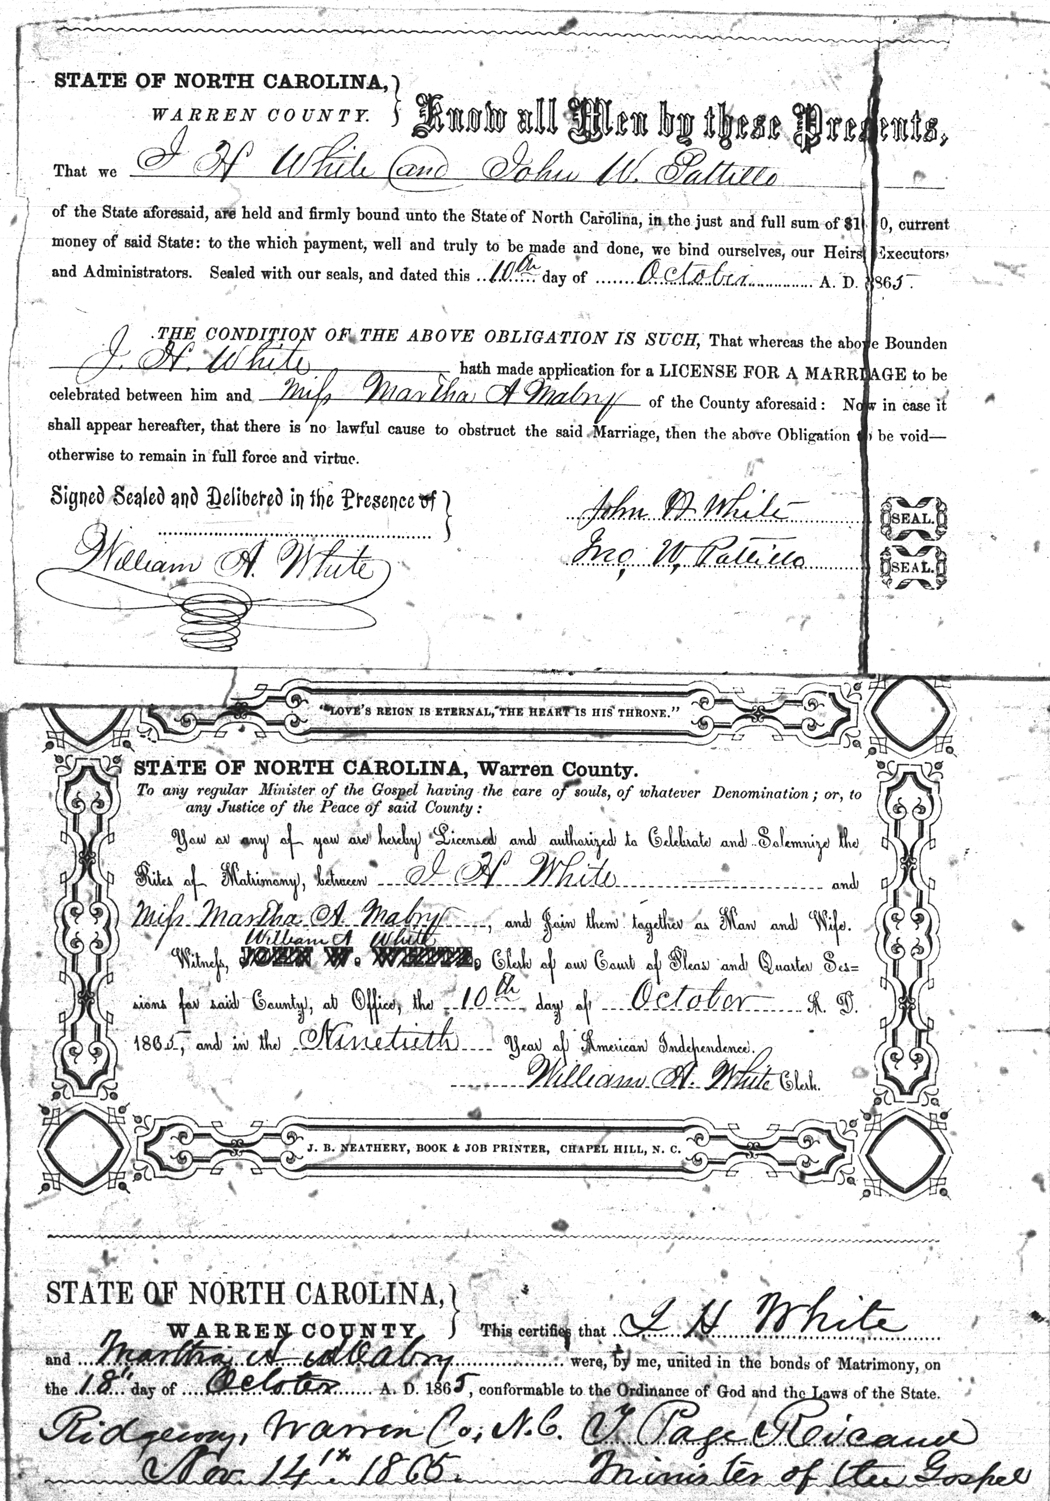 STATE OF NORTH CAROLINA,
WARREN COUNTY.
Know all Men by these Presents,
That we J H White and John W. Pattillo
of the State aforesaid, are held and firmly bound unto the State of North Carolina, in the just and full sum of $1 0, current
money of said State: to the which payment, well and truly to be made and done, we bind ourselves, our Heirs Executors,
and Administrators. Sealed with our seals, and dated this 10th day of October A. D. 1865.
THE CONDITION OF THE ABOVE OBLIGATION IS SUCH, That whereas the above Bounden
J. H. White hath made application for a LICENSE FOR A MARRIAGE to be
celebrated between him and Miss Martha A Mabry of the County aforesaid: Now in case it
shall appear hereafter, that there is no lawful cause to obstruct the said Marriage, then the above Obligation to be void—
otherwise to remain in full force and virtue.
Signed Sealed and Delibered in the Presence of
John H White SEAL.
William A. White
Jno, W. Pattillo SEAL.
"LOVE'S REIGN IS ETERNAL, THE HEART IS HIS THRONE."
STATE OF NORTH CAROLINA, Warren County.
To any regular Minister of the Gospel having the care of souls, of whatever Denomination; or, to
any Justice of the Peace of said County:
You or any of you are hereby Licensed and authorized to Celebrate and Solemnize the
Rites of Matrimony, between J H White and
Miss Martha A. Mabry, and Join them together as Man and Wife.
William A White
Witness, JOHN W. WHITE, Clerk of our Court of Pleas and Quarter Ses=
sions for said County, at Office, the 10th day of October A. D.
1865, and in the Ninetieth Year of American Independence.
William A. White Clerk.
J. B. NEATHERY, BOOK & JOB PRINTER, CHAPEL HILL, N. C.
STATE OF NORTH CAROLINA,
WARREN COUNTY
This certifies that J H White
and Martha A Mabry were, by me, united in the bonds of Matrimony, on
the 18th day of October A. D. 1865, conformable to the Ordinance of God and the Laws of the State.
Ridgeway, Warren Co, N.C. T Page Ricaud
Nov. 14th. 1865. Minister of the Gospel